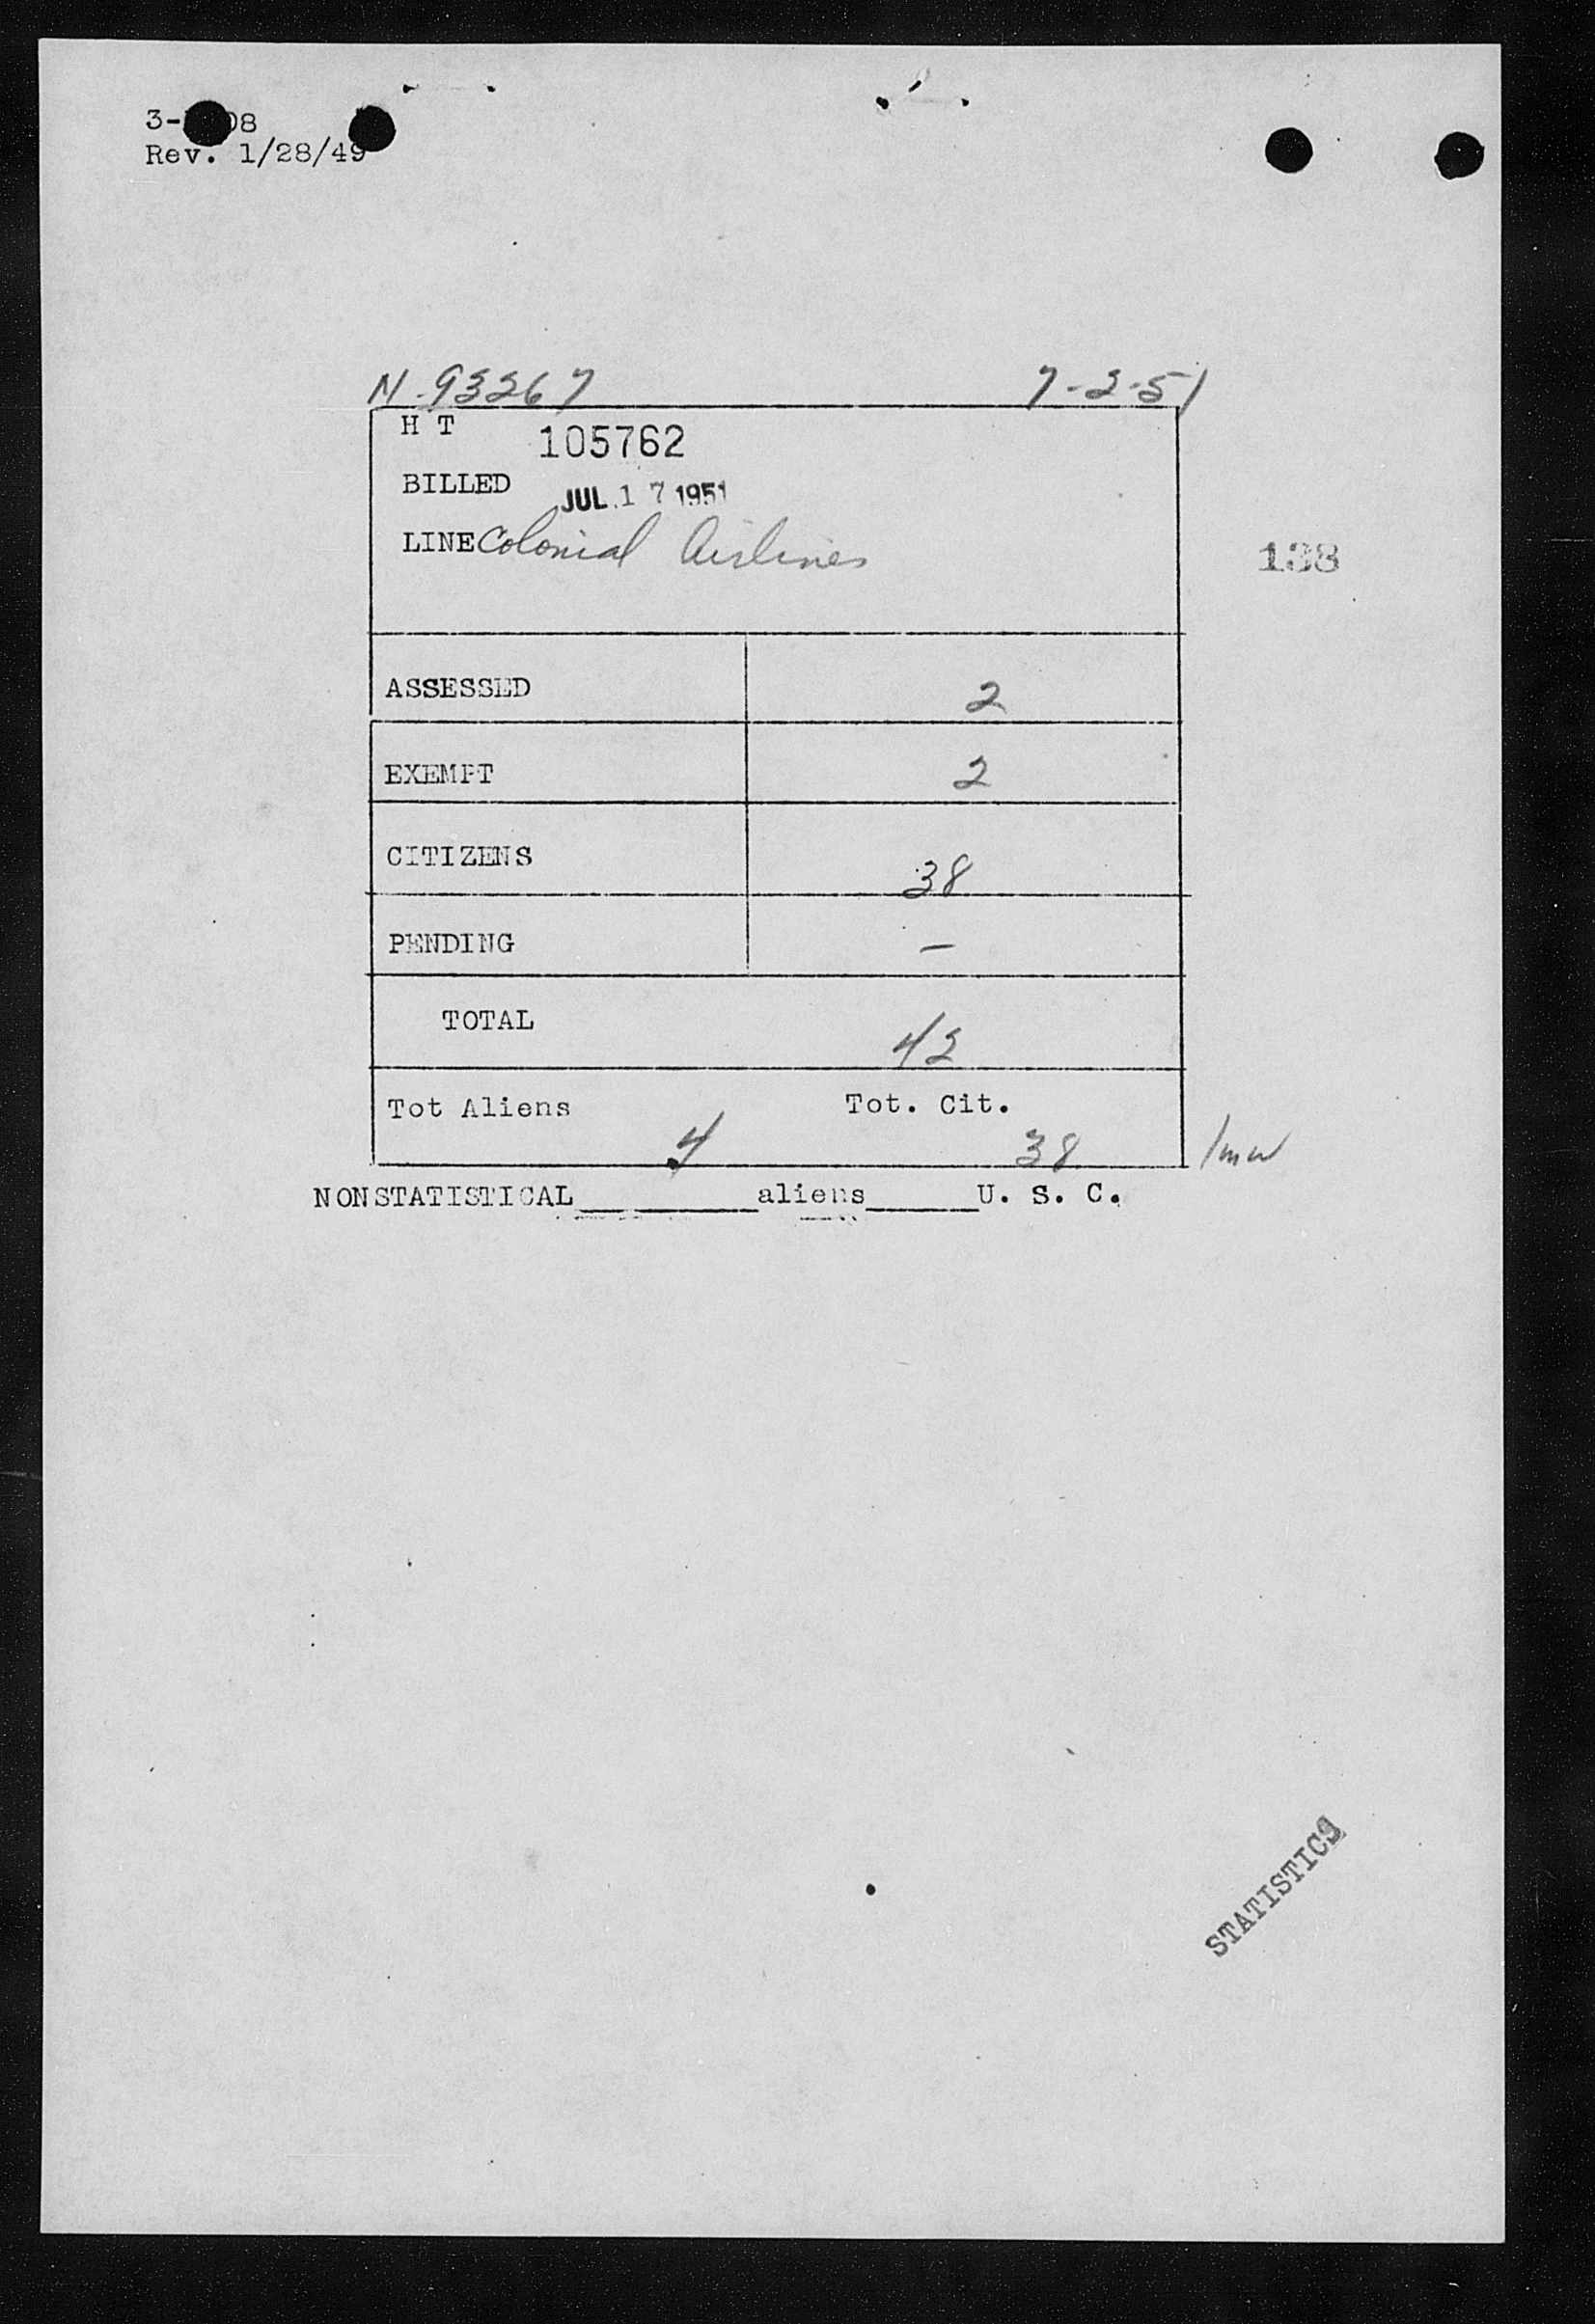 3-08
Rev. 1/28/49
N-93267 7-2-51
H T 105762
BILLED JUL 17 1951
LINE Colonial Airlines
138
ASSESSED 2
EXEMPT 2
CITIZENS 38
PENDING —
TOTAL 42
Tot Aliens 4 Tot. Cit. 38 /mw
NONSTATISTICAL________aliens_____U. S. C.
STATISTICS